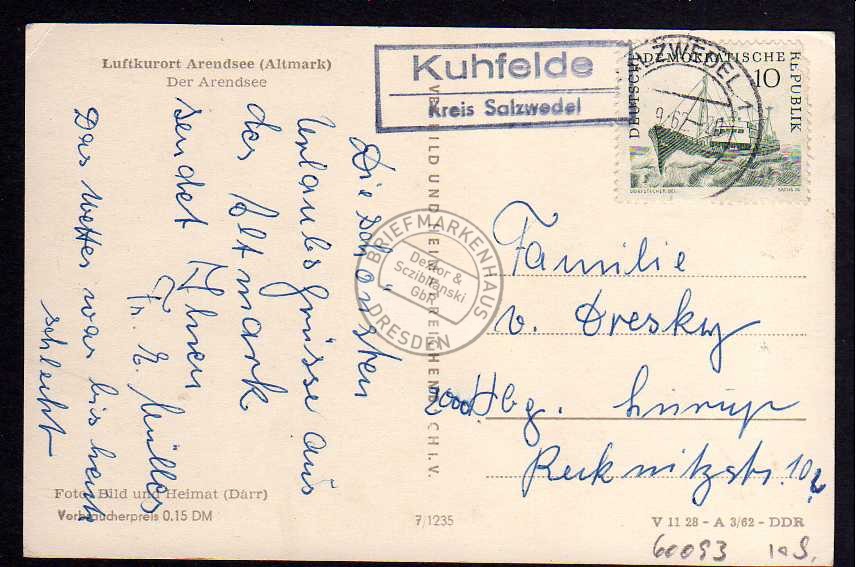 Luftkurort Arendsee (Altmark)
Der Arendsee
Kuhfelde
Kreis Salzwedel
SALZWEDEL 1
9.62
DEUTSCHE DEMOKRATISCHE REPUBLIK
10
Die schönsten
Urlaubsgrüsse aus
der Altmark
sendet Ihnen
Fr. E. Müller
Das Wetter war bis heute
schlecht
VEB BILD UND HEIMAT REICHENBACH I. V.
BRIEFMARKENHAUS
Dektor &
Sczibilanski
GbR
DRESDEN
Familie
v. Dresky
Hbg. Lurup
Recknitzstr. 10
Foto: Bild und Heimat (Därr)
Verbraucherpreis 0.15 DM
7/1235
V 11 28 – A 3/62 – DDR
60093